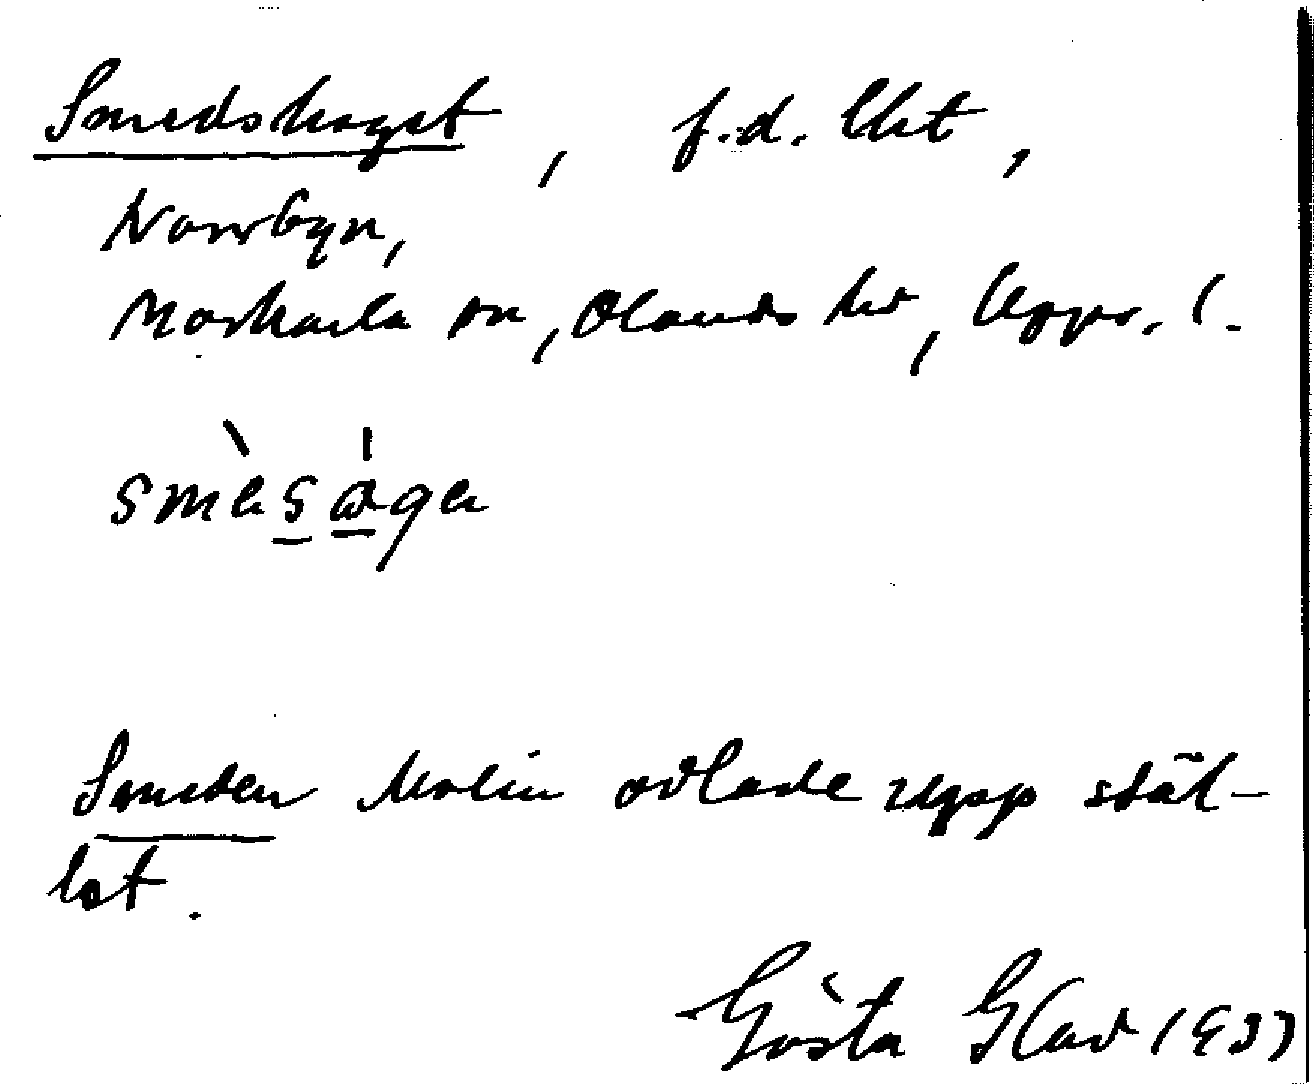 Smedshaget, f.d. lht,
Norrbyn,
Morkarla sn, Olands hd, Upps. l.
Smeden Molin odlade upp stäl-
let.
Gösta Glad 1933